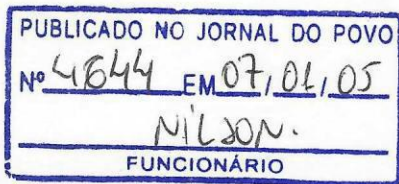 PUBLICADO NO JORNAL DO POVO
Nº 4644 EM 07/01/05
NILSON.
FUNCIONÁRIO